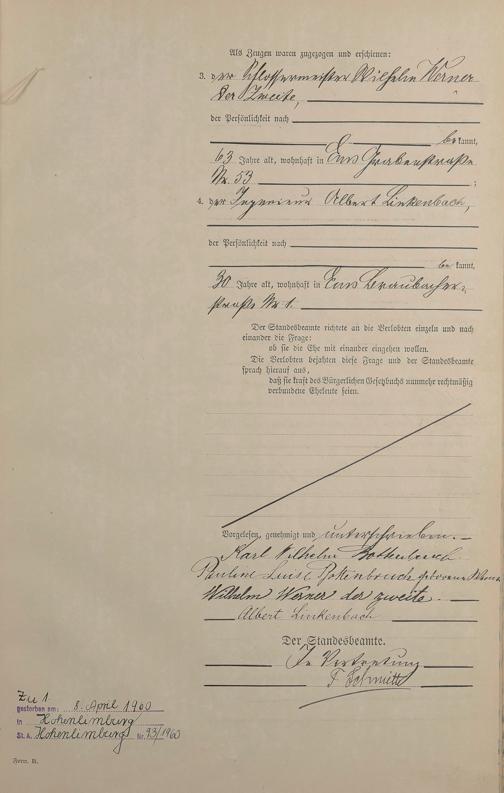 Als Zeugen waren zugezogen und erschienen:
3. der Schlossermeister Wilhelm Werner
der Zweite,
der Persönlichkeit nach
be kannt,
63 Jahre alt, wohnhaft in Ems Grabenstraße
Nr. 53 ;
4. der Ingenieur Albert Linkenbach,
der Persönlichkeit nach
be kannt,
30 Jahre alt, wohnhaft in Ems Braubacher-
straße Nr. 1.
Der Standesbeamte richtete an die Verlobten einzeln und nach
einander die Frage:
ob sie die Ehe mit einander eingehen wollen.
Die Verlobten bejahten diese Frage und der Standesbeamte
sprach hierauf aus,
daß sie kraft des Bürgerlichen Gesetzbuchs nunmehr rechtmäßig
verbundene Eheleute seien.
Vorgelesen, genehmigt und unterschrieben.
Karl Wilhelm
Pauline Luise geborene Werner
Wilhelm Werner der zweite.
Albert Linkenbach
Der Standesbeamte.
In Vertretung
Zu 1.
gestorben am: 8. April 1960
in Hohenlimburg
St. A. Hohenlimburg Nr. 93/1960
Form. B.